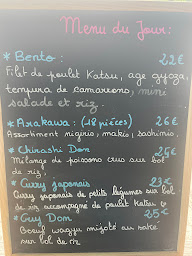 Menu du Jour:
* Bento: 22€
Filet de poulet Katsu, age gyoza,
tempura de camarones, mini
salade et riz.
* Arakawa: (18 pièces) 26€
Assortiment nigirio, makio, sachimio.
* Chirashi Don 25€
Mélange de poissons crus sur bol
de riz.
* Curry japonais 23€
Curry japonais de petits légumes sur bol
de riz accompagné de poulet katsu
* Guy Dom 25€
Boeuf wagyu mijoté au saké
sur bol de riz